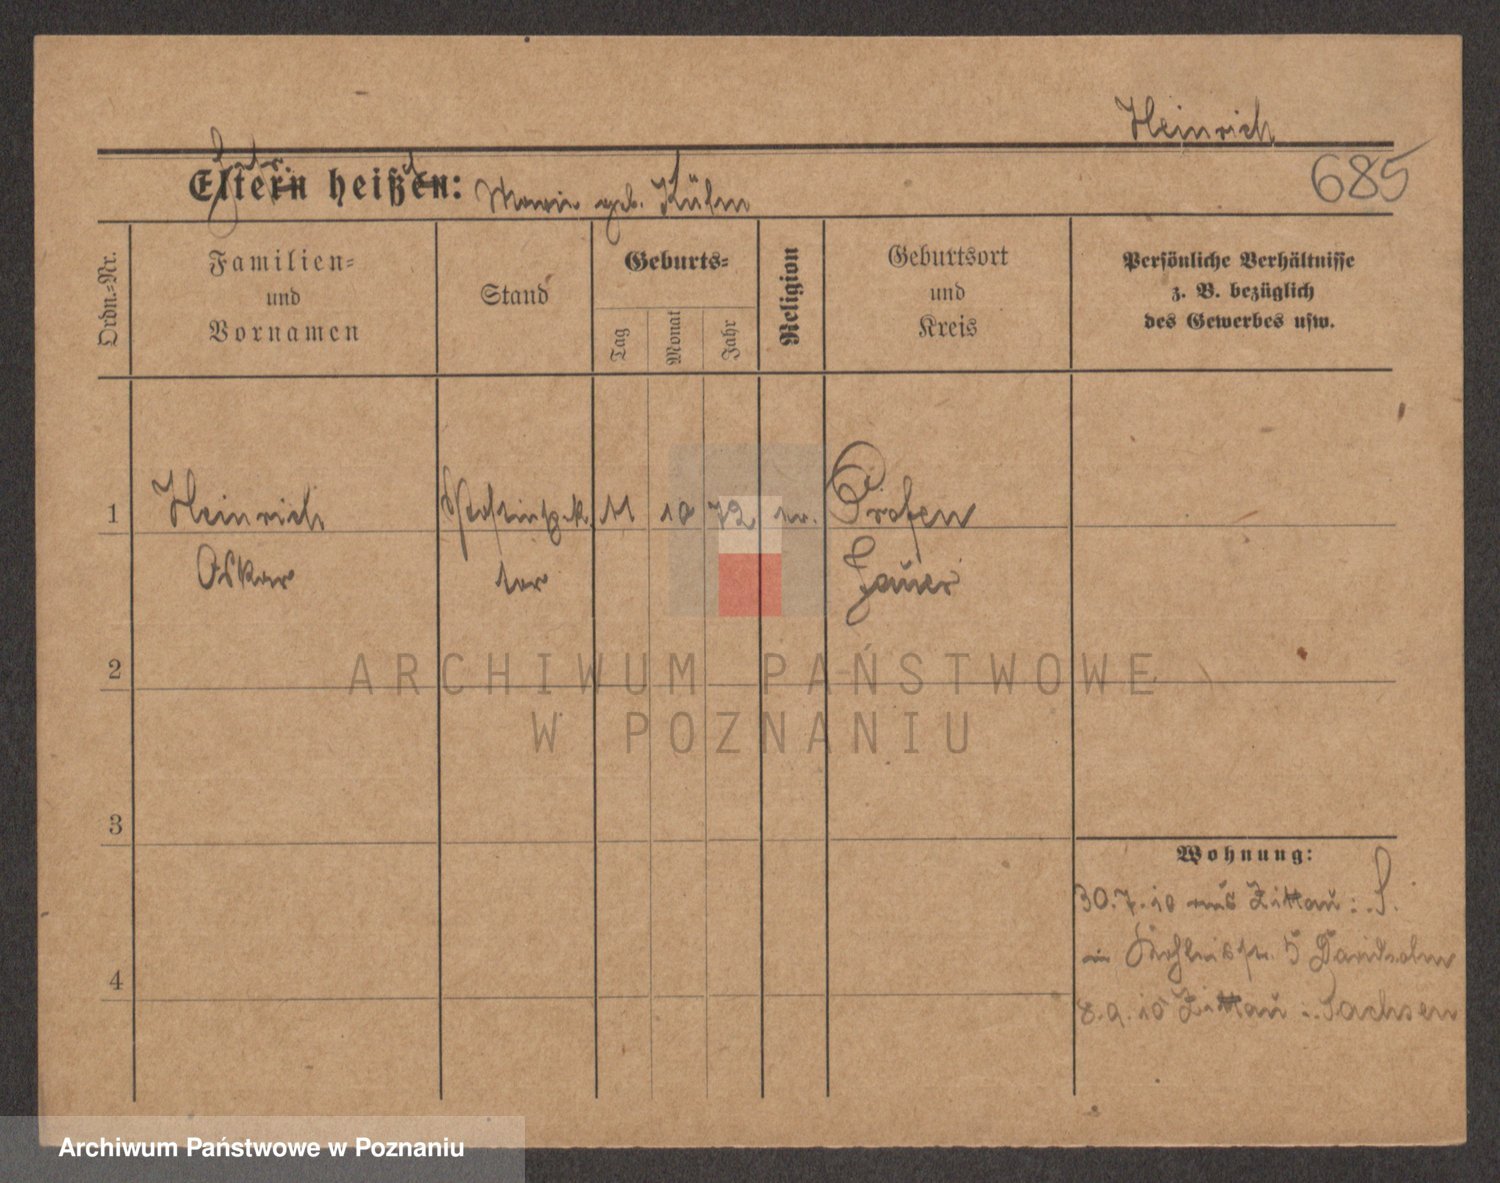 Heinrich
685
Eltern heißen: Marie geb. Kühn
Ordn.=Nr.
Familien=
und
Vornamen
Stand
Geburts=
Tag
Monat
Jahr
Religion
Geburtsort
und
Kreis
Persönliche Verhältnisse
z. B. bezüglich
des Gewerbes usw.
1
Heinrich 11 10 72 ev. Profen
Oskar Jauer
2
3
4
Wohnung:
30.7.10 aus Zittau i. S.
in 5
8.9.10 Zittau i. Sachsen
ARCHIWUM PAŃSTWOWE
W POZNANIU
Archiwum Państwowe w Poznaniu